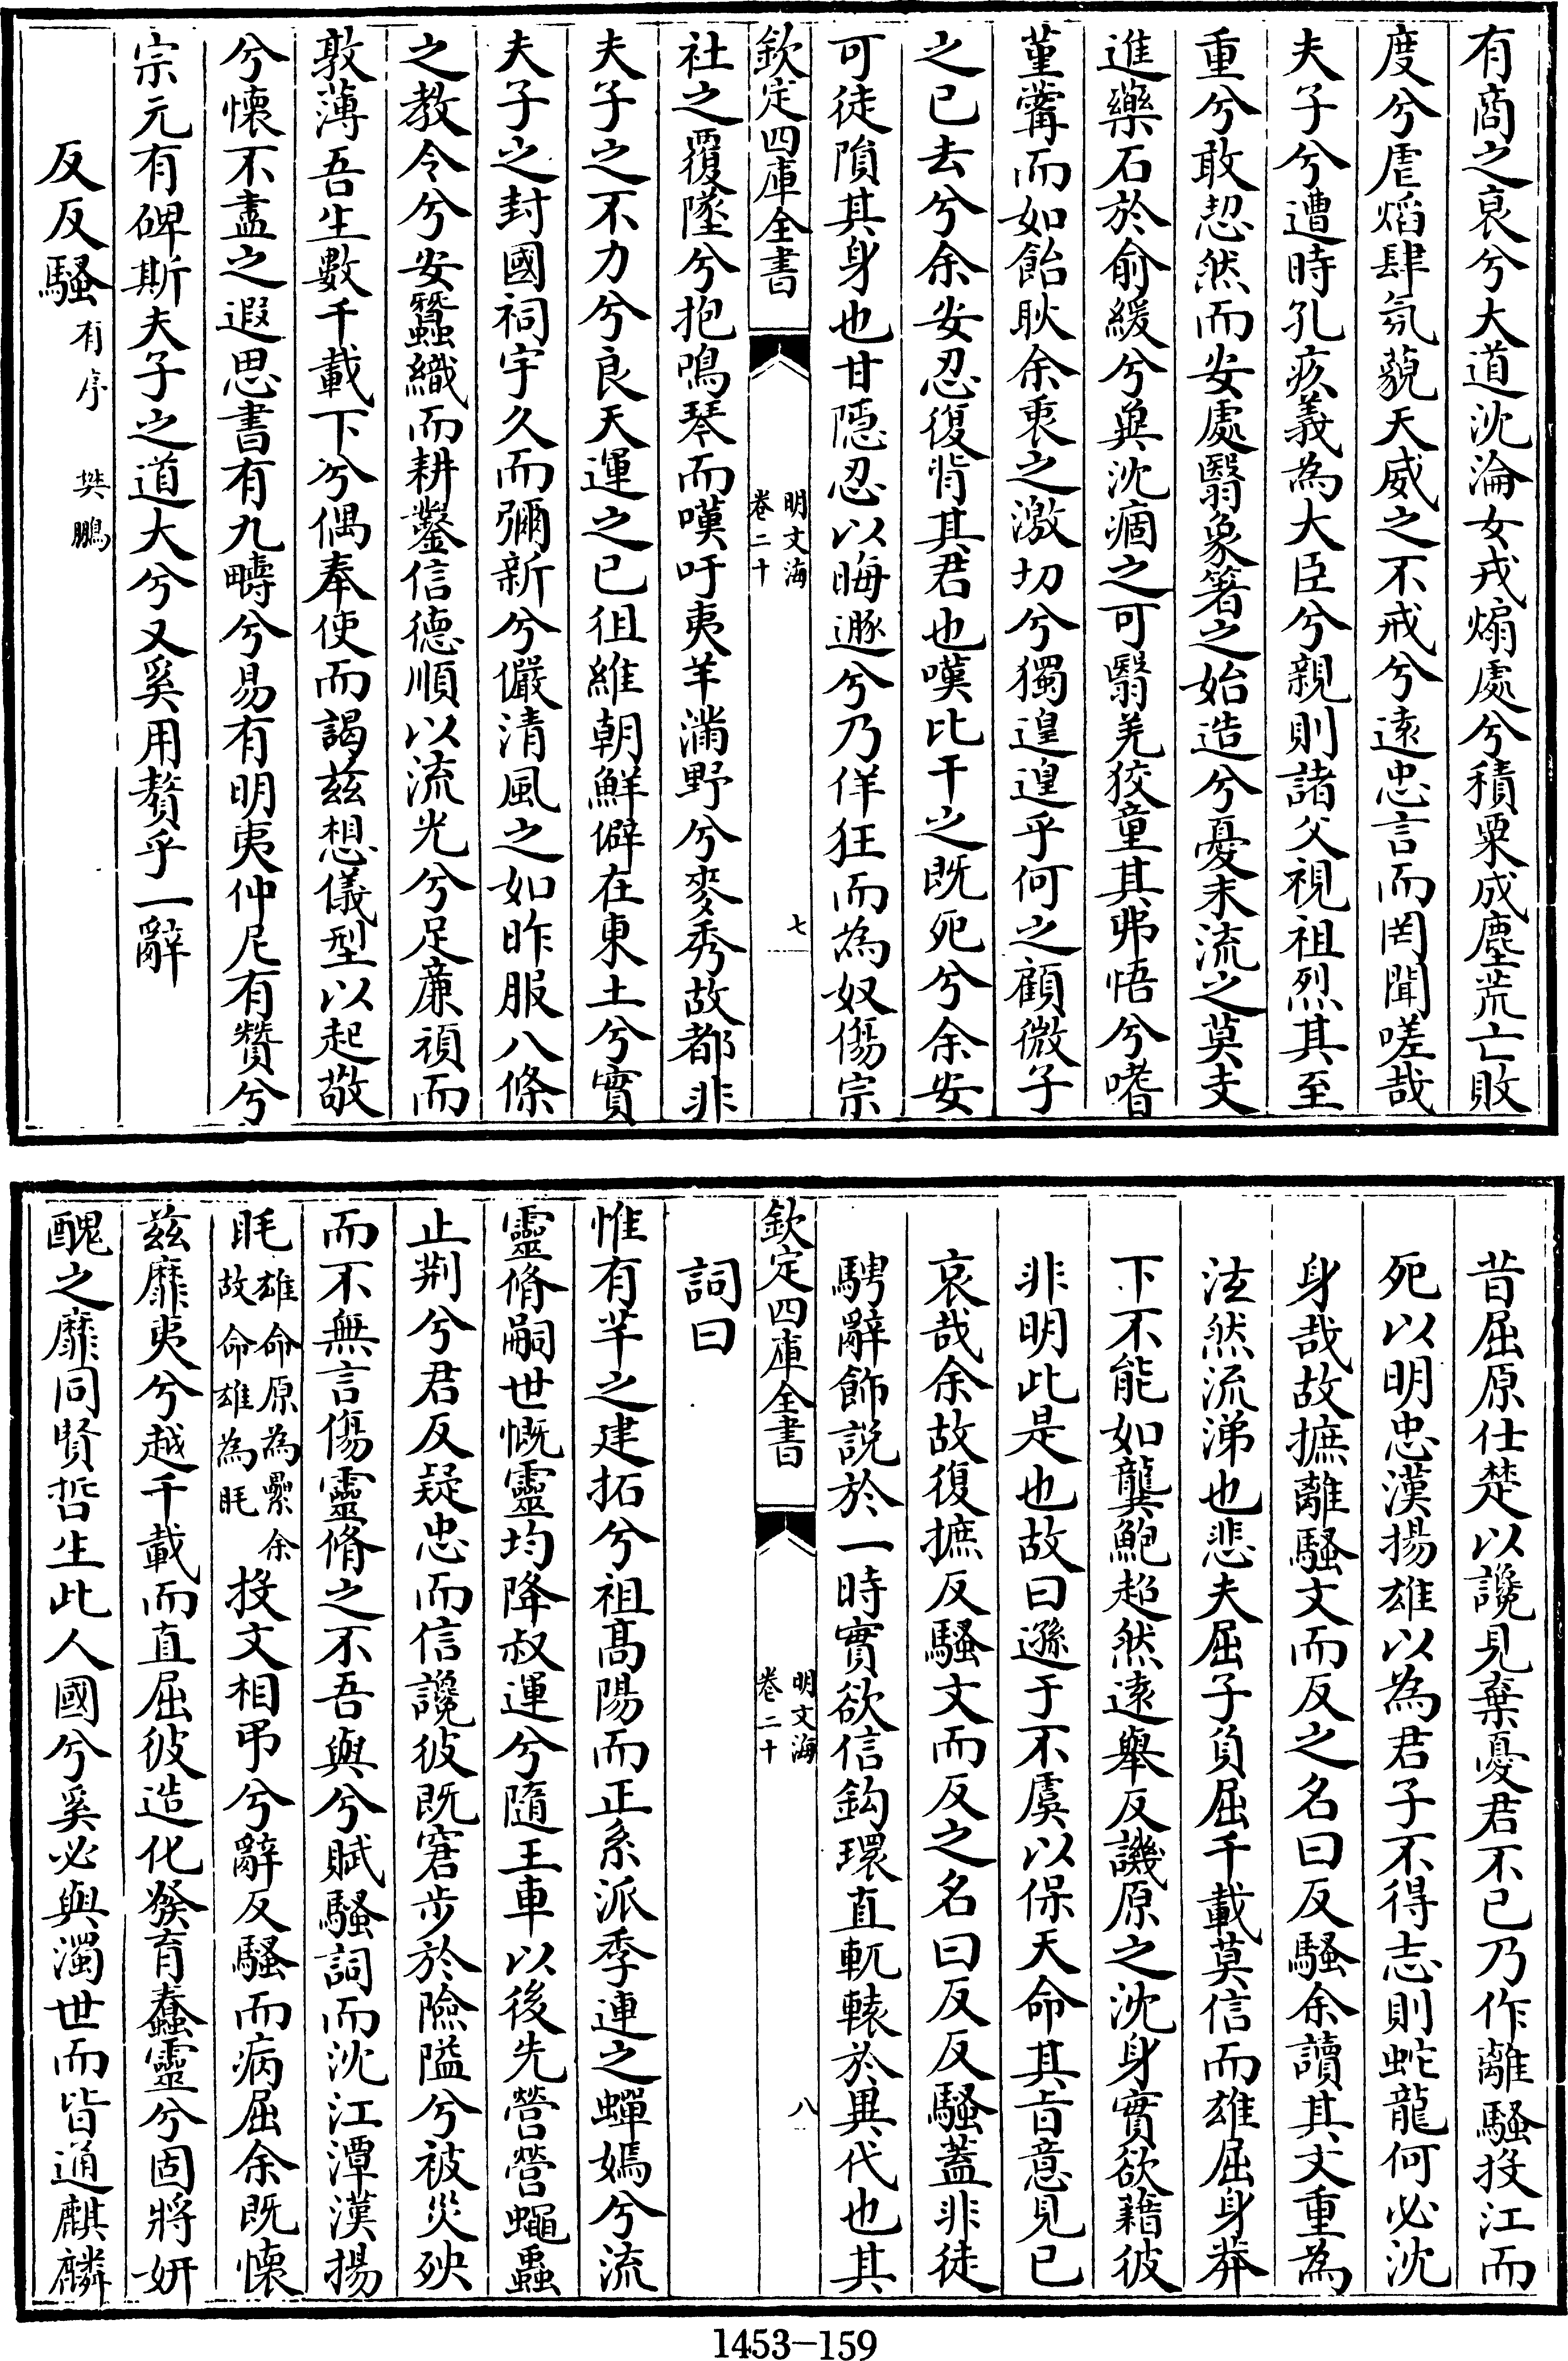 有商之哀兮大道沈淪女戎煽處兮積粟成塵荒亡敗
度兮虐熖肆氛藐天威之不戒兮逺忠言而罔聞嗟哉
夫子兮遭時孔疚義為大臣兮親則諸父視祖烈其至
重兮敢恝然而安處翳象箸之始造兮憂末流之莫支
進藥石於俞緩兮兾沈痼之可翳羌狡童其弗悟兮嗜
堇䵷而如飴耿余衷之激切兮獨遑遑乎何之顧微子
之已去兮余安忍復背其君也嘆比干之既死兮余安
可徒隕其身也甘隠忍以晦遯兮乃佯狂而為奴傷宗
欽定四庫全書
明文海
卷二十
七
社之覆墜兮抱鳴琴而嘆吁夷羊滿野兮麥秀故都非
夫子之不力兮良天運之已徂維朝鮮僻在東土兮實
夫子之封國祠宇久而彌新兮儼清風之如昨服八條
之教令兮安蠶織而耕鑿信德順以流光兮足亷頑而
敦薄吾生數千載下兮偶奉使而謁兹想儀型以起敬
兮懷不盡之遐思書有九疇兮易有明夷仲尼有贊兮
宗元有碑斯夫子之道大兮又奚用贅乎一辭
反反騷有序 樊鵬
昔屈原仕楚以讒見棄憂君不已乃作離騷投江而
死以明忠漢揚雄以為君子不得志則蛇龍何必沈
身哉故摭離騷文而反之名曰反騷余讀其文重為
泫然流涕也悲夫屈子負屈千載莫信而雄屈身莽
下不能如龔鮑超然逺舉反譏原之沈身實欲藉彼
非明此是也故曰遜于不虞以保天命其旨意見已
哀哉余故復摭反騷文而反之名曰反反騷蓋非徒
騁辭飾說於一時實欲信鈎環直軏轅於異代也其
欽定四庫全書
明文海
卷二十
八
詞曰
惟有羋之建拓兮祖髙陽而正系派季連之蟬嫣兮流
靈脩嗣世慨靈均降叔運兮隨王車以後先營營蠅蟲
止荆兮君反疑忠而信讒彼既窘步於險隘兮被災殃
而不無言傷靈脩之不吾與兮賦騷詞而沈江潭漢揚
眊雄命原為纍余故命雄為眊投文相弔兮辭反騷而病屈余既懷
兹靡夷兮越千載而直屈彼造化發育蠢靈兮固將妍
醜之靡同賢哲生此人國兮奚必與濁世而皆通麒麟
1453-159